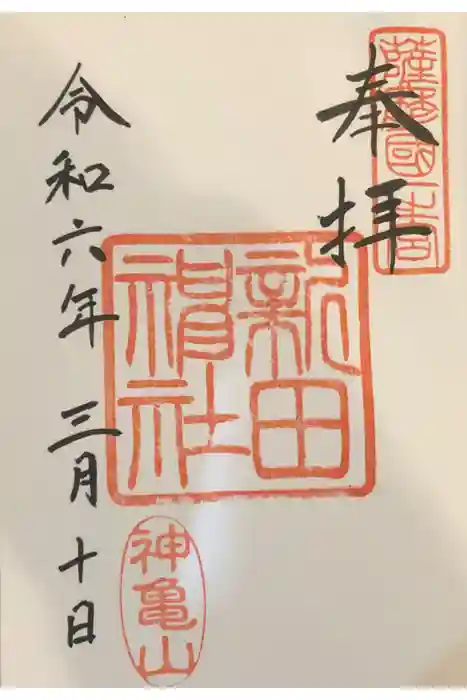 奉拝
薩摩國一之宮
新田神社
令和六年 三月 十日
神亀山